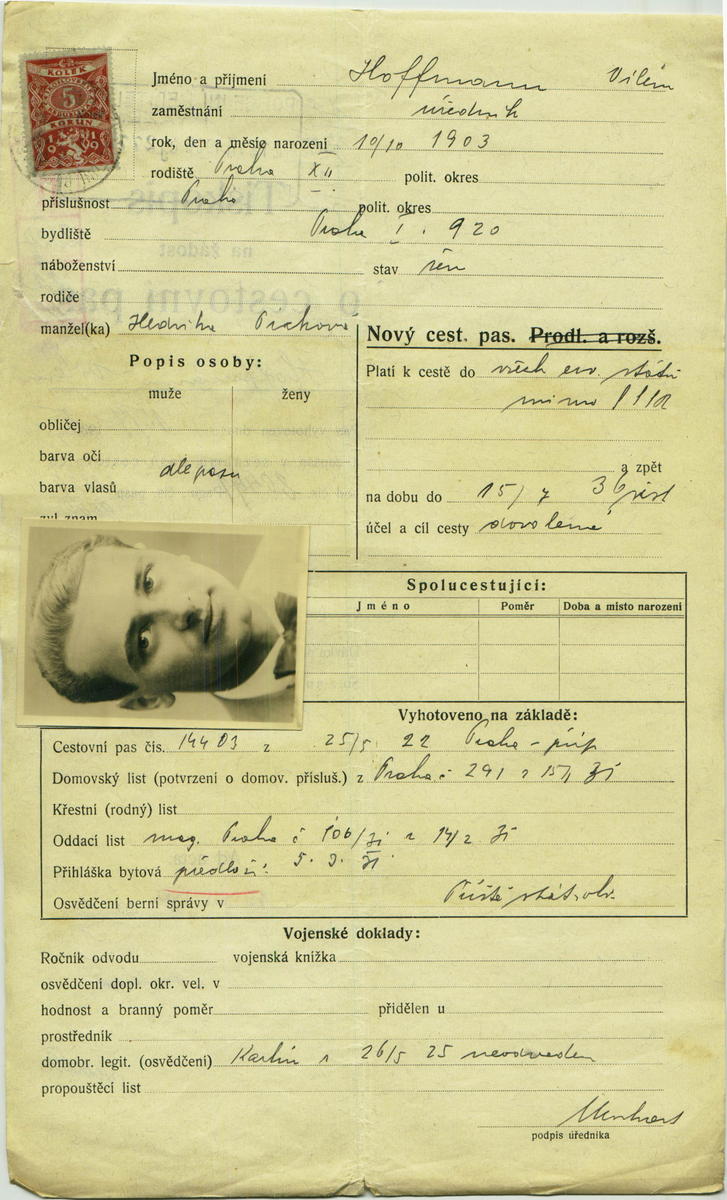 KOLEK
5
KORUN
19 19
Jméno a přijmení Hoffmann Vilém
zaměstnání úředník
rok, den a měsíc narození 10/10 1903
rodiště Praha XII polit. okres
příslušnost Praha polit. okres
bydliště Praha I. 920
náboženství stav žen
rodiče
manžel(ka) Hedvika
Nový cest. pas. Prodl. a rozš.
Popis osoby:
muže ženy
obličej
barva očí
barva vlasů dle pasu
zvl. znam.
Platí k cestě do všech ev. států
mimo
a zpět
na dobu do 15/7 36
účel a cíl cesty dovolená
Spolucestující:
Jméno Poměr Doba a místo narození
Vyhotoveno na základě:
Cestovní pas čís. 14403 z 25/5 22 Praha
Domovský list (potvrzení o domov. přísluš.) z Praha č 291
Křestní (rodný) list
Oddací list mag. Praha č 106/31 z 14/2 31
Přihláška bytová předlož. 5. 3. 31
Osvědčení berní správy v
Vojenské doklady:
Ročník odvodu vojenská knížka
osvědčení dopl. okr. vel. v
hodnost a branný poměr přidělen u
prostředník
domobr. legit. (osvědčení) Karlín z 26/5 25 neodveden
propouštěcí list
podpis úředníka